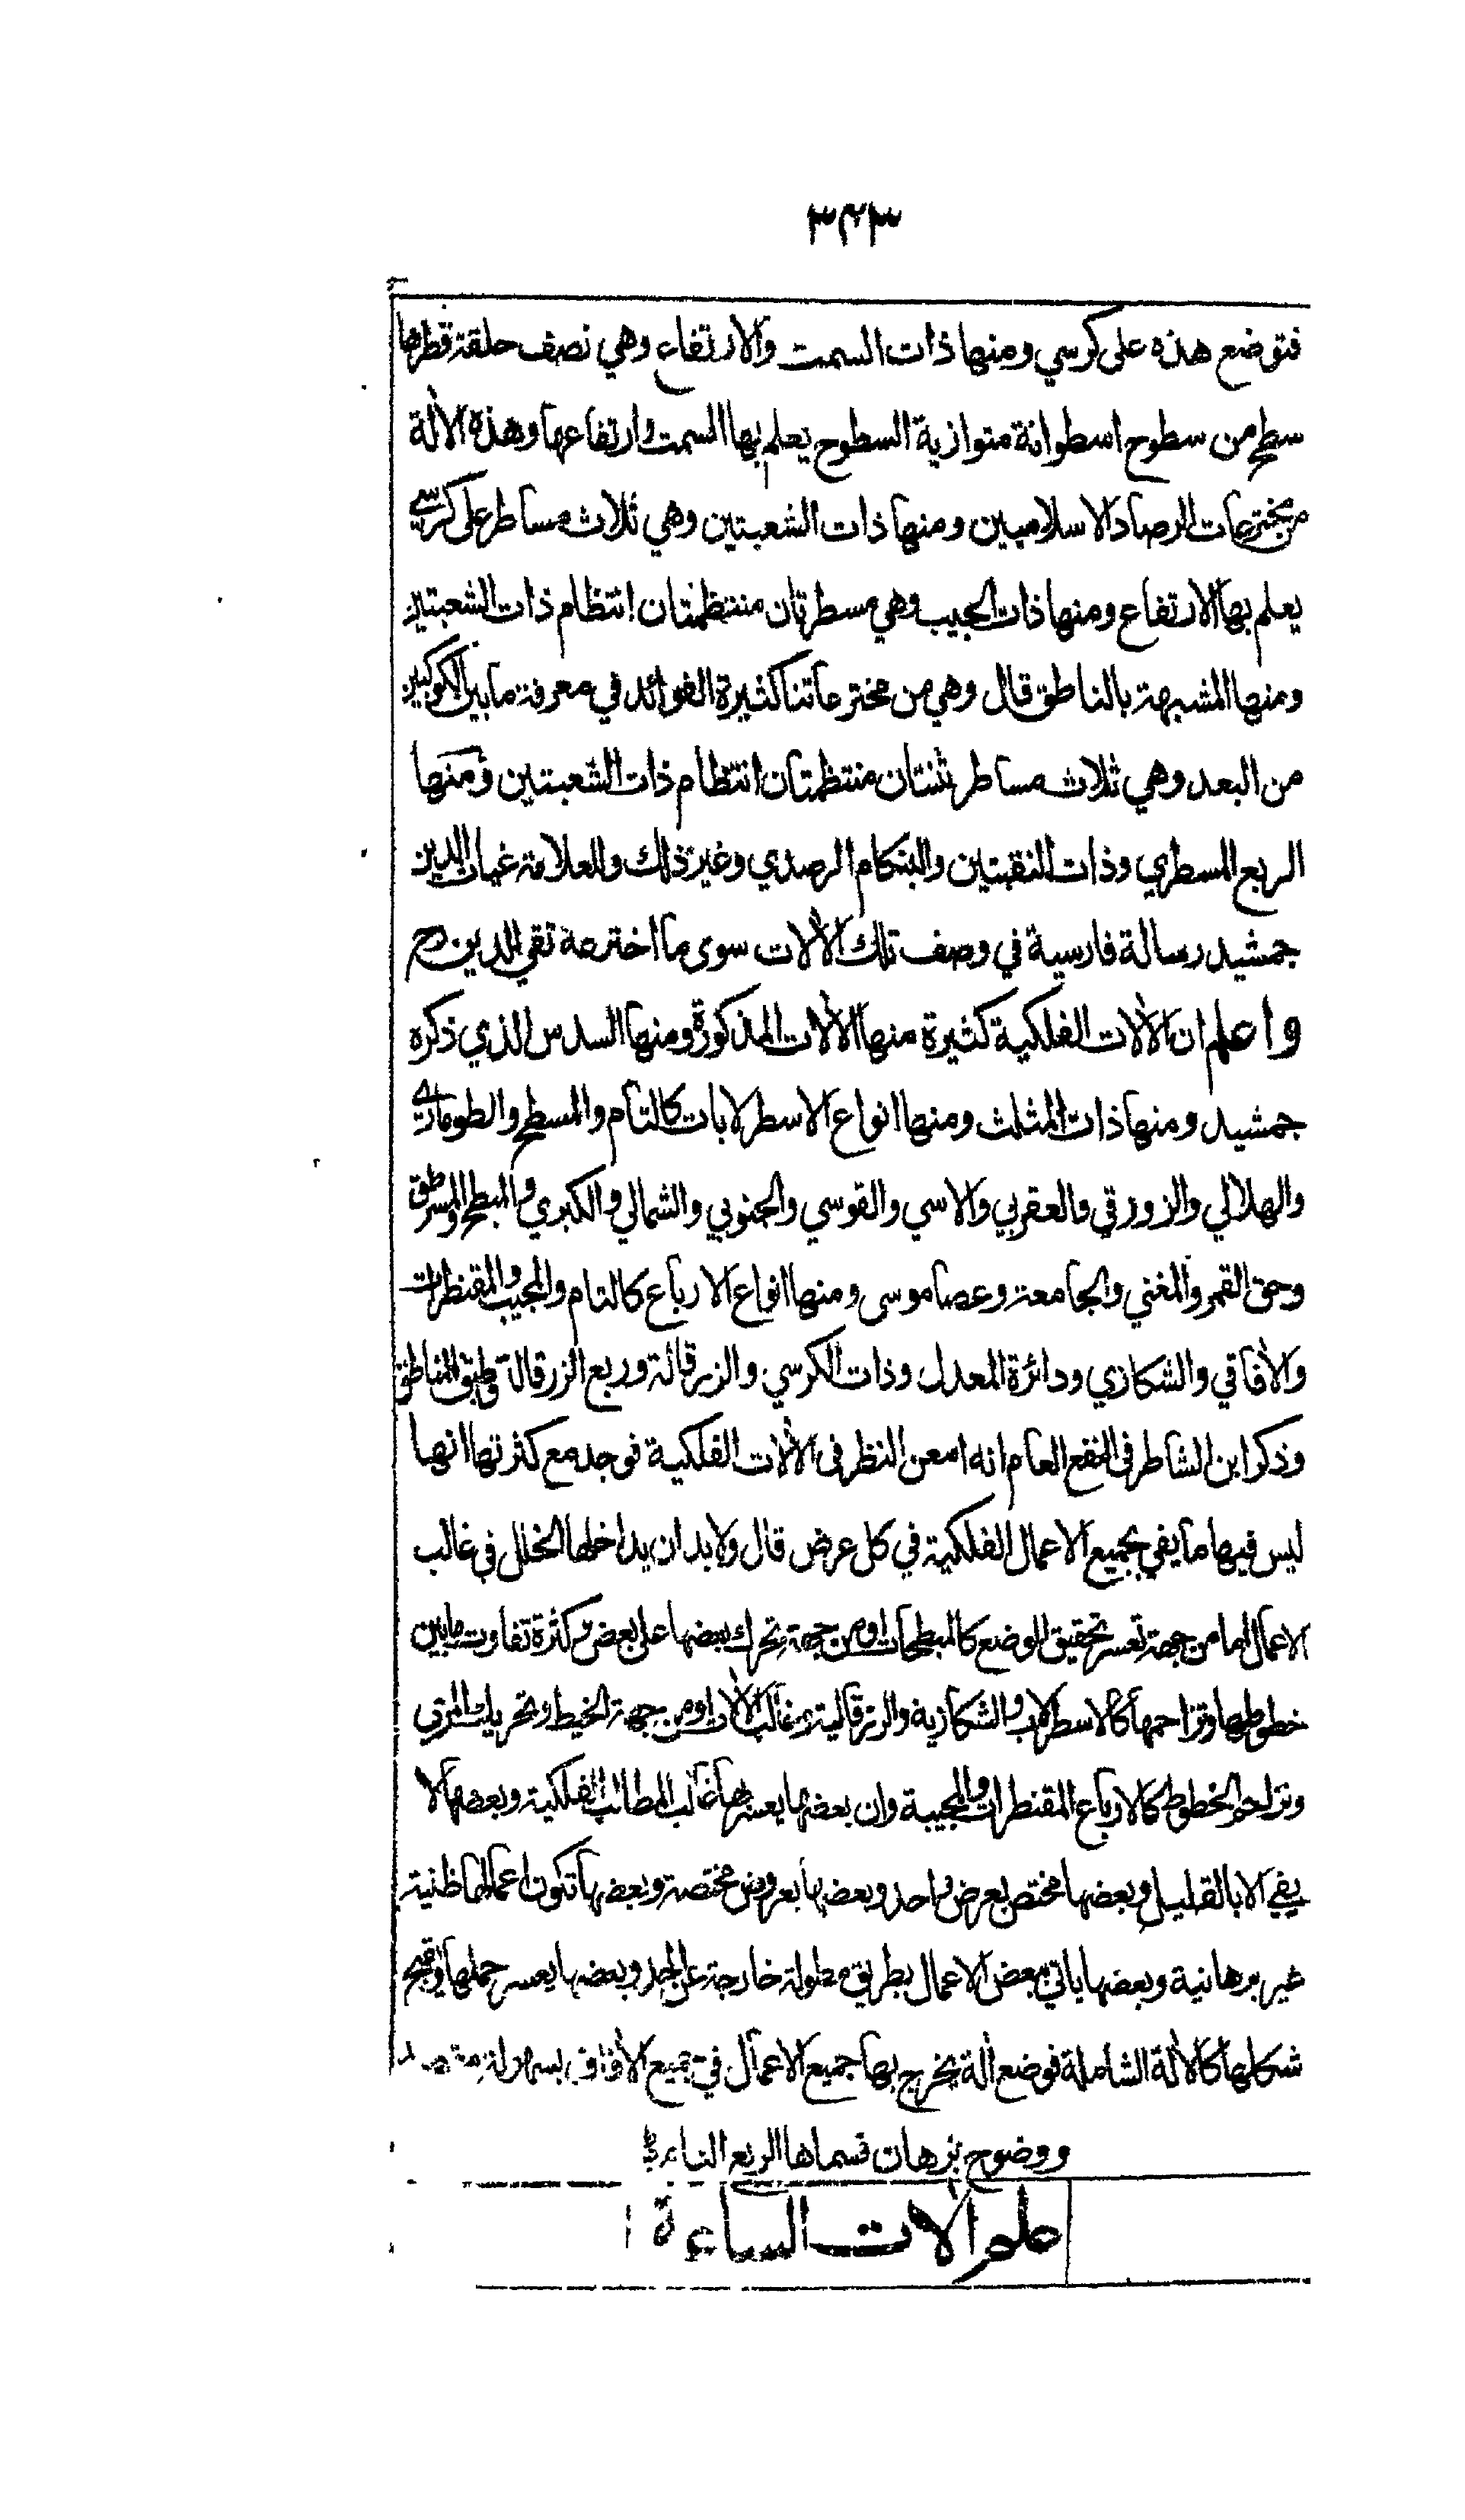 ٣٤٣
فتوضع هذه على كرسي ومنها ذات السمت والارتفاع وهي نصف حلقة قطرها
سطح من سطوح اسطوانة متوازية السطوح يعلم بها السمت وارتفاعها وهذه الألة
من مخترعات الرصاد الاسلاميين ومنها ذات الشعبتين وهي ثلاث مساطر على كرسي
يعلم بها الارتفاع ومنها ذات الجيب وهي مسطرتان منتظمتان انتظام ذات الشعبتين
ومنها المشبهة بالناطق قال وهي من مخترعاتنا كثيرة الفوائد في معرفة ما بين الكوكبين
من البعد وهي ثلاث مساطر ثنتان منتظمتان انتظام ذات الشعبتين ومنها
الربع المسطري وذات النقبتين والبنكام الرصدي وغير ذلك وللعلامة غياث الدين
جمشيد رسالة فارسية في وصف تلك الألات سوى ما اخترعه تقي الدين رح
واعلم ان الألات الفلكية كثيرة منها الألات المذكورة ومنها السدس الذي ذكره
جمشيد ومنها ذات المثلث ومنها انواع الاسطرلابات كالتام والمسطح والطوماري
والهلالي والزورقي والعقربي والاسي والقوسي والجنوبي والشمالي والكبري والمبطح والمسرطق
وحق القمر والمغني والجامعة وعصا موسى ومنها انواع الارباع كالتام والمجيب والمقنطرات
والأفاقي والشكازي ودائرة المعدل وذات الكرسي والزرقالة وربع الزرقالة وطبق المناطق
وذكر ابن الشاطر في النفع العام انه امعن النظر في الألات الفلكية فوجد مع كثرتها انها
ليس فيها ما يفي بجميع الاعمال الفلكية في كل عرض قال ولا بد ان يداخلها الخلل في غالب
الاعمال اما من جهة تعسر تحقيق الوضع كالمبطحات او من جهة تحرك بعضها على بعض وكثرة تفاوت ما بين
خطوطها وتزاحمها كالاسطرلاب والشكازية والزرقالية وغالب الألات او من جهة الخيط وتحريك المري
وتزاحم الخطوط كالارباع المقنطرات والمجيبة وان بعضها يعسر بها غالب المطالب الفلكية وبعضها لا
يفي الا بالقليل وبعضها مختص بعرض واحد وبعضها بعروض مختصة وبعضها تكون اعمالها ظنية
غير برهانية وبعضها ياتي ببعض الاعمال بطريق مطولة خارجة عن الحد وبعضها يعسر حملها وقبح
شكلها كالألة الشاملة فوضع ألة يخرج بها جميع الاعمال في جميع الأفاق بسهولة مقصد
ووضوح برهان فسماها الربع التام
علم الآلات الساعة